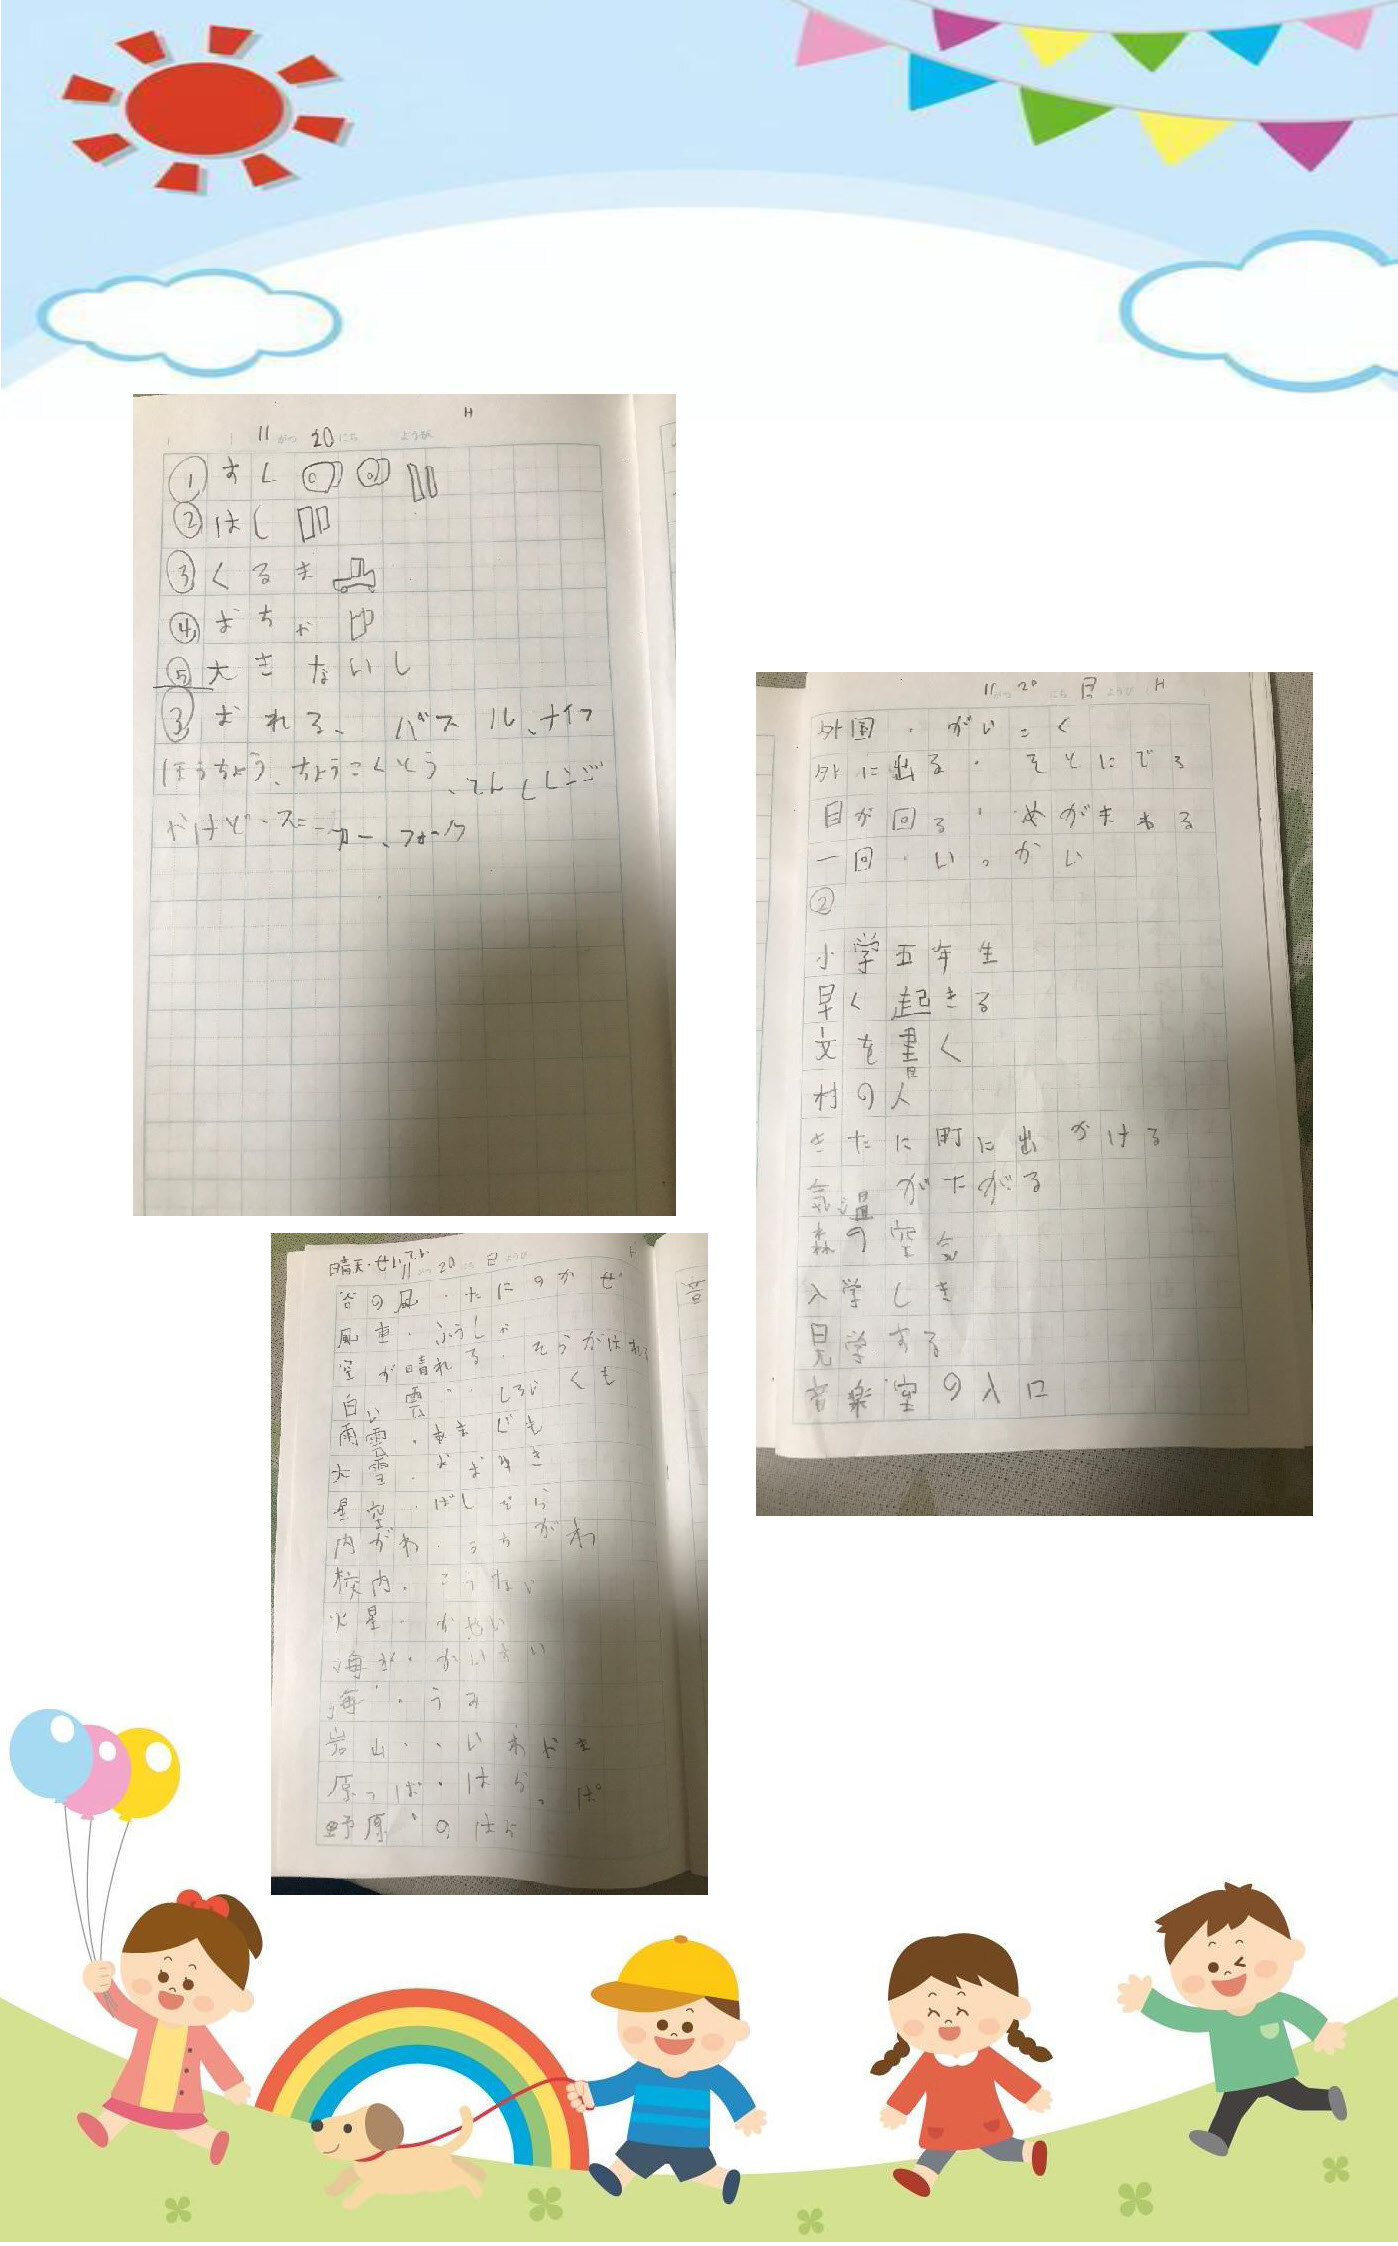 H
11 がつ 20 にち ようび
① すし
② はし
③ くるま
④ おちゃ
⑤ 大きないし
③ おれる、バズル、ナイフ
ほうちょう、ちょうこくとう、でんしレンジ
やけど、スニーカー、フォーク
11 がつ 20 にち 日 ようび H
外国・がいこく
外に出る・そとにでる
目が回る・めがまわる
一回・いっかい
②
小学五年生
早く起きる
文を書く
村の人
きたに町に出かける
気温がたがる
森の空気
入学しき
見学する
音楽室の入口
晴天・せいてん
11 がつ 20 にち 日 ようび H
谷の風・たにのかぜ
風車・ふうしゃ
空が晴れる・そらがはれる
白い雲・しろいくも
雨雲・あまぐも
大雪・おおゆき
星空・ほしぞら
内がわ・うちがわ
校内・こうない
火星・かせい
海がい・かいがい
海・うみ
岩山・いわやま
原っぱ・はらっぱ
野原・のはら